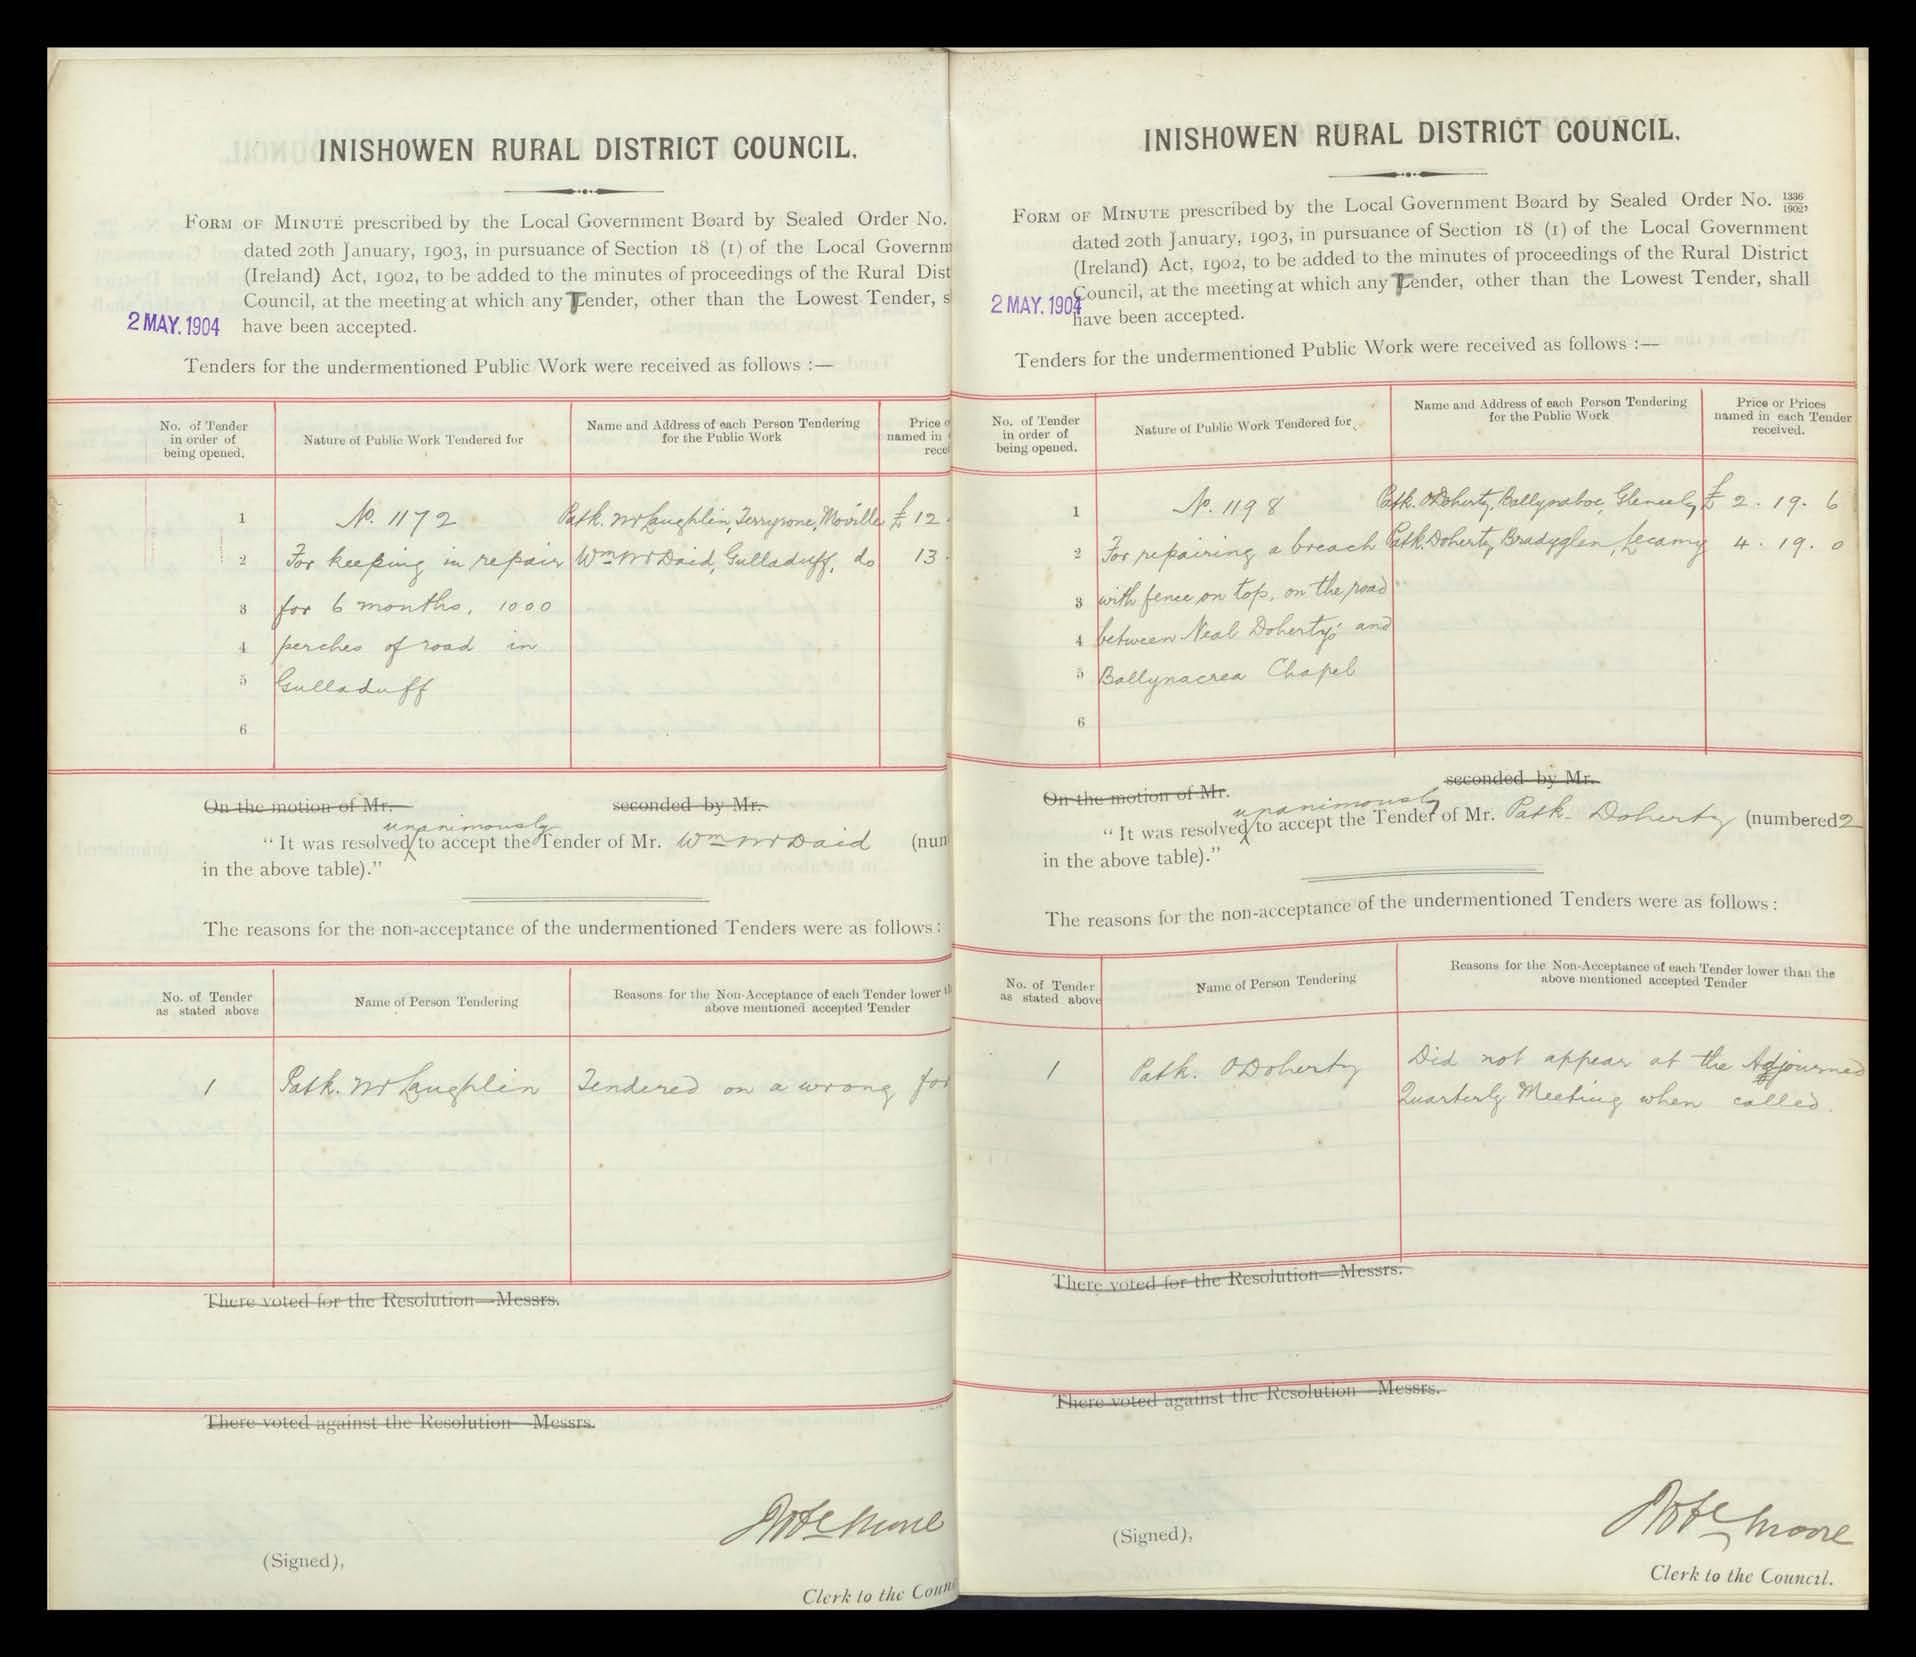 INISHOWEN RURAL DISTRICT COUNCIL.
FORM OF MINUTE prescribed by the Local Government Board by Sealed Order No.
dated 20th January, 1903, in pursuance of Section 18 (1) of the Local Governm
(Ireland) Act, 1902, to be added to the minutes of proceedings of the Rural Dist
Council, at the meeting at which any Tender, other than the Lowest Tender, s
2 MAY. 1904 have been accepted.
Tenders for the undermentioned Public Work were received as follows :—
No. of Tender in order of being opened.
Nature of Public Work Tendered for
Name and Address of each Person Tendering for the Public Work
Price o
named in
recei
1 No. 1172 Patk. McLaughlin, Terryrone, Moville £ 12
2 For keeping in repair Wm McDaid, Gulladuff, do 13
3 for 6 months, 1000
4 perches of road in
5 Gulladuff
6
On the motion of Mr. seconded by Mr.
unanimously
"It was resolved to accept the Tender of Mr. Wm McDaid (num
in the above table)."
The reasons for the non-acceptance of the undermentioned Tenders were as follows :
No. of Tender as stated above
Name of Person Tendering
Reasons for the Non-Acceptance of each Tender lower th
above mentioned accepted Tender
1 Patk. McLaughlin Tendered on a wrong for
There voted for the Resolution—Messrs.
There voted against the Resolution—Messrs.
(Signed),
Clerk to the Coun
INISHOWEN RURAL DISTRICT COUNCIL.
FORM OF MINUTE prescribed by the Local Government Board by Sealed Order No. 1336/1902,
dated 20th January, 1903, in pursuance of Section 18 (1) of the Local Government
(Ireland) Act, 1902, to be added to the minutes of proceedings of the Rural District
Council, at the meeting at which any Tender, other than the Lowest Tender, shall
2 MAY. 1904 have been accepted.
Tenders for the undermentioned Public Work were received as follows :—
No. of Tender in order of being opened.
Nature of Public Work Tendered for
Name and Address of each Person Tendering for the Public Work
Price or Prices named in each Tender received.
1 No. 1198 Patk. O'Doherty, Gleneely £ 2 . 19 . 6
2 For repairing a breach Patk. Doherty, Bradyglen, Lecamy 4 . 19 . 0
3 with fence on top, on the road
4 between Neal Doherty's and
5 Ballynacrea Chapel
6
On the motion of Mr. seconded by Mr.
unanimously
"It was resolved to accept the Tender of Mr. Patk. Doherty (numbered 2
in the above table)."
The reasons for the non-acceptance of the undermentioned Tenders were as follows :
No. of Tender as stated above
Name of Person Tendering
Reasons for the Non-Acceptance of each Tender lower than the
above mentioned accepted Tender
1 Patk. O'Doherty Did not appear at the Adjourned
Quarterly Meeting when called.
There voted for the Resolution—Messrs.
There voted against the Resolution—Messrs.
(Signed), Moore
Clerk to the Council.